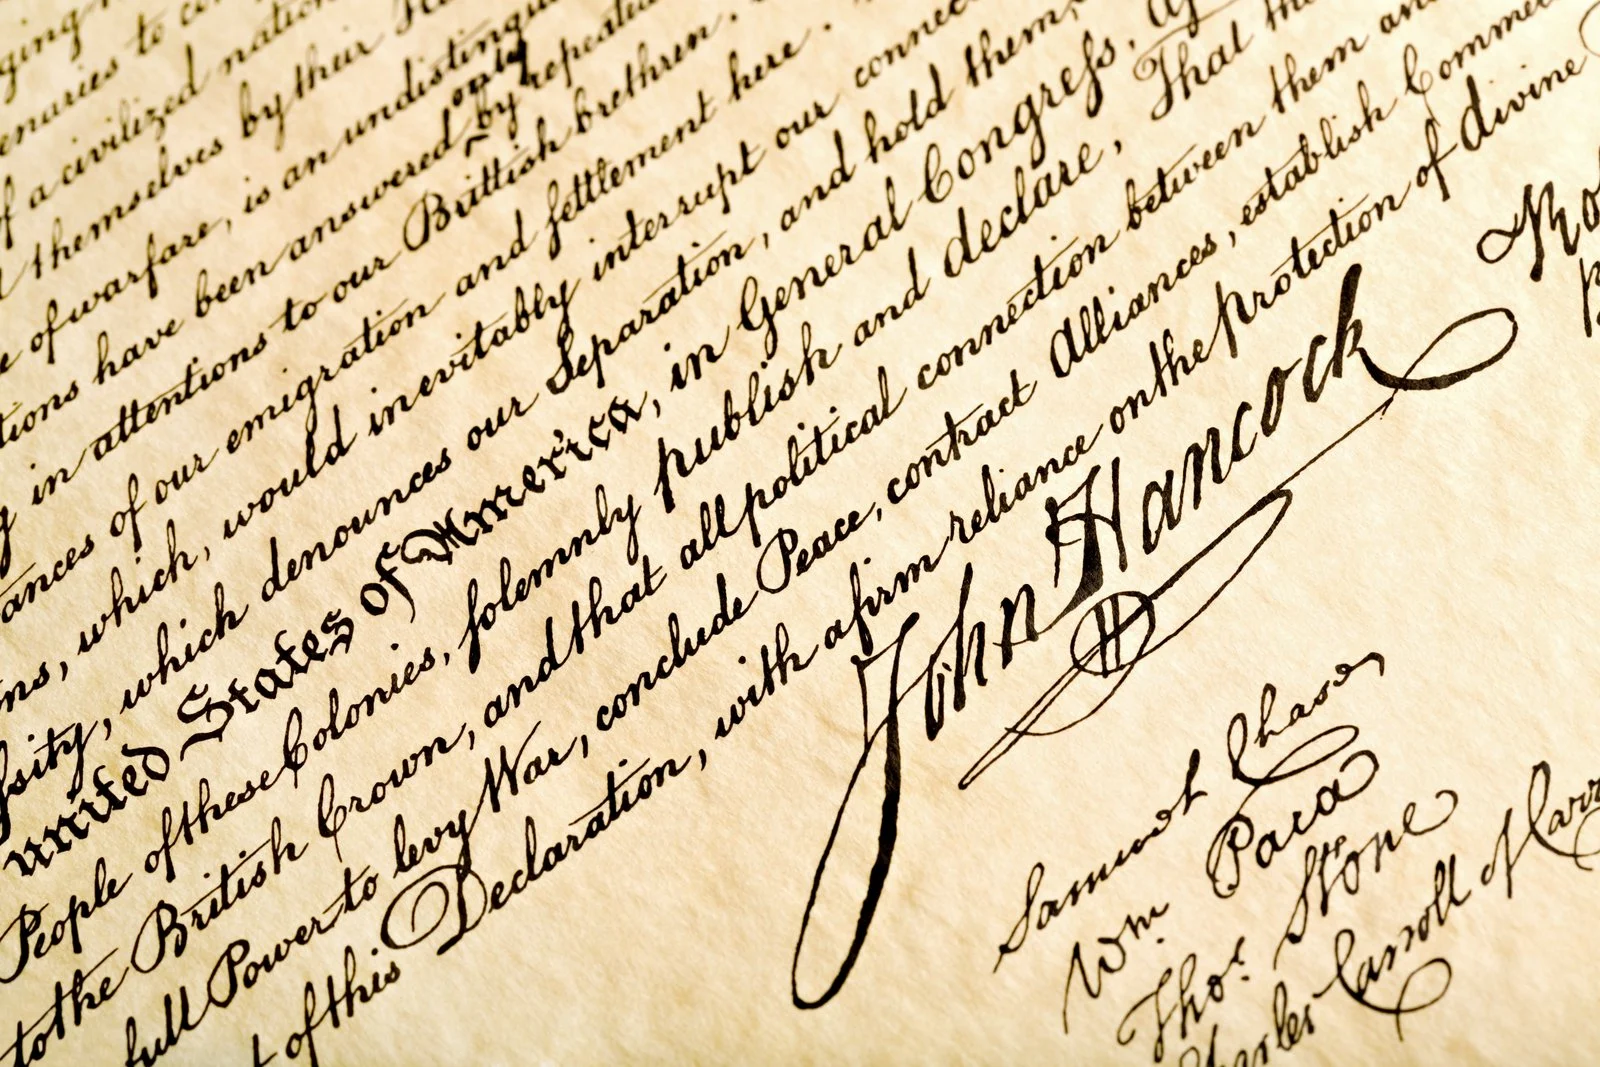 enaries to
of a civilized nation
themselves by their
of warfare, is an undistingu
only
tions have been answered by repeated
in attentions to our Brittish brethren.
ances of our emigration and settlement here.
ns, which, would inevitably interrupt our connec
sity, which denounces our Separation, and hold them,
united States of America, in General Congress,
People of these Colonies, solemnly publish and declare, That the
to the British Crown, and that all political connection between them an
full Power to levy War, conclude Peace, contract Alliances, establish Commer
of this Declaration, with a firm reliance on the protection of divine
John Hancock
Samuel Chase
Wm. Paca
Thos. Stone
Charles Carroll of Carro